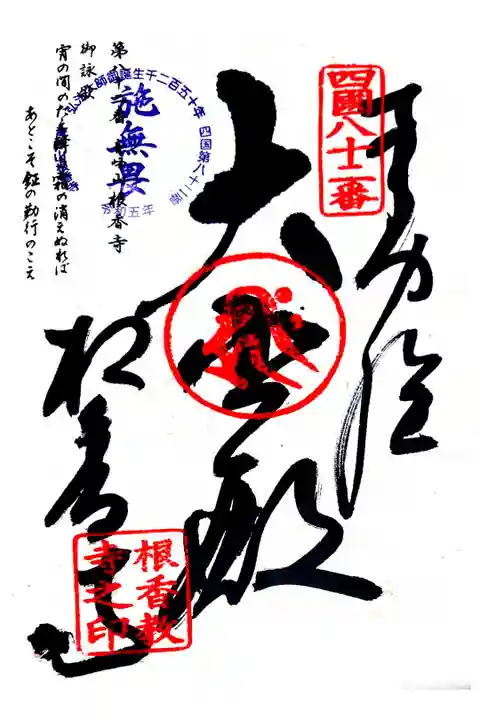 四國八十二番
奉拝
大悲殿
根香寺
根香教
寺之印
第八十二番 青峰山根香寺
御詠歌
宵の間のたえ降る霜の消えぬれば
あとこそ鉦の勤行のこえ
弘法大師御誕生千二百五十年
四国第八十二番
施無畏
令和五年